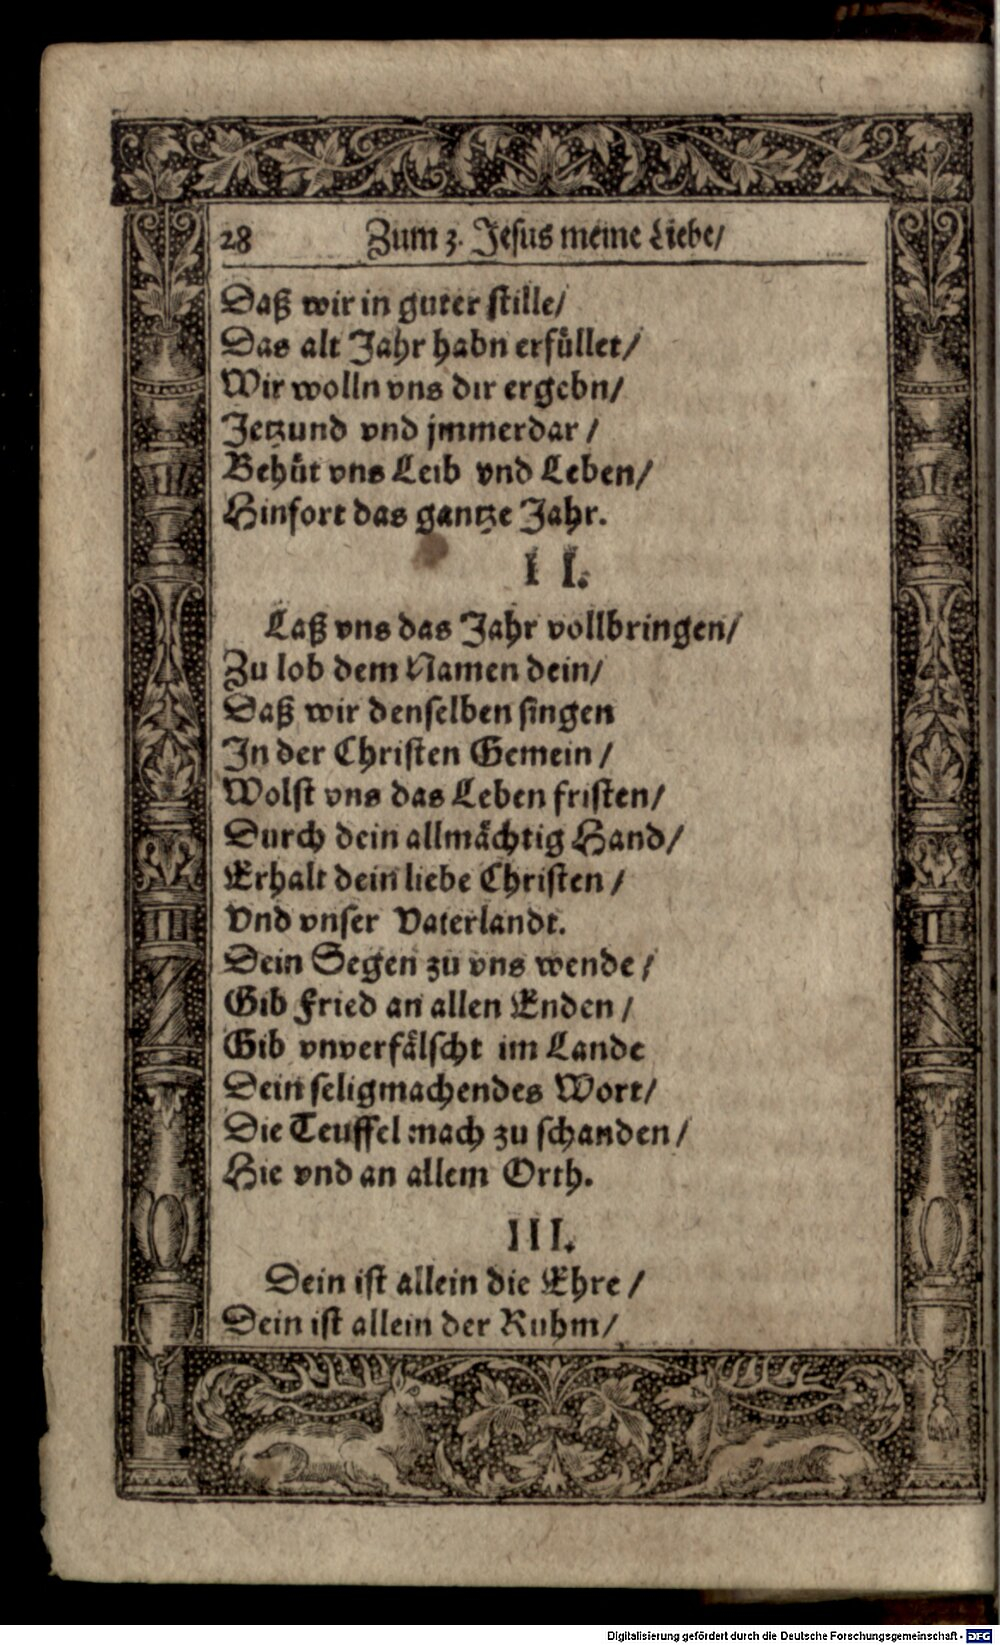 28 Zum 3. Jesus meine Liebe/
Daß wir in guter stille/
Das alt Jahr habn erfüllet/
Wir wolln vns dir ergebn/
Jetzund vnd jmmerdar /
Behüt vns Leib vnd Leben/
Hinfort das gantze Jahr.
II.
Laß vns das Jahr vollbringen/
Zu lob dem Namen dein/
Daß wir denselben singen
In der Christen Gemein /
Wolst vns das Leben fristen/
Durch dein allmächtig Hand/
Erhalt dein liebe Christen /
Vnd vnser Vaterlandt.
Dein Segen zu vns wende /
Gib Fried an allen Enden /
Gib vnverfälscht im Lande
Dein seligmachendes Wort/
Die Teuffel mach zu schanden /
Hie vnd an allem Orth.
III.
Dein ist allein die Ehre /
Dein ist allein der Ruhm/
Digitalisierung gefördert durch die Deutsche Forschungsgemeinschaft - DFG